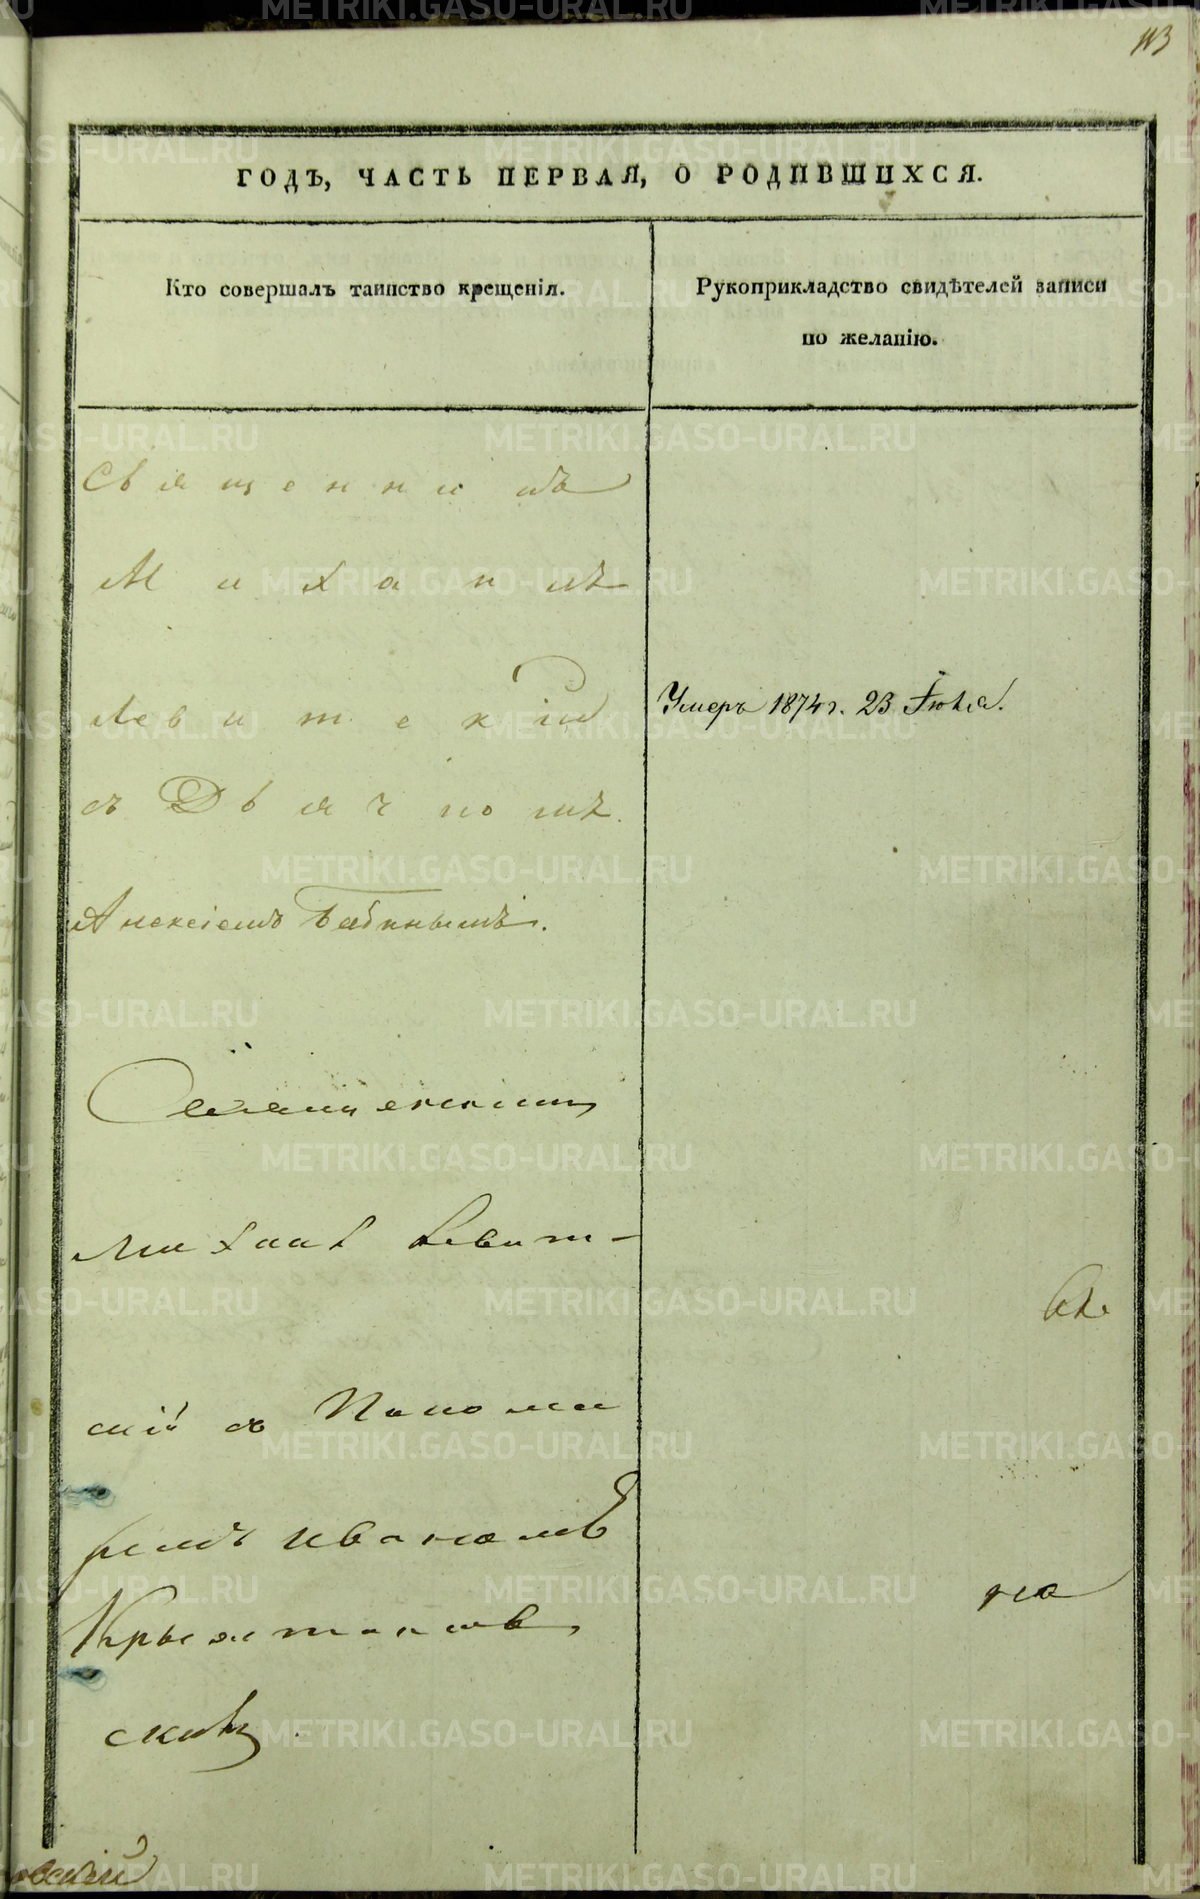 113
ГОДЪ, ЧАСТЬ ПЕРВАЯ, О РОДИВШИХСЯ.
Кто совершалъ таинство крещенія.
Рукоприкладство свидѣтелей записи
по желанію.
Священникъ
Михаилъ
Левитскій
Умеръ 1874 г. 23 Іюля.
съ Дьячкомъ
Алексіемъ Бабинымъ.
Священникъ
Михаилъ Левит-
скій съ Понома
ремъ Иваномъ
но
METRIKI.GASO-URAL.RU